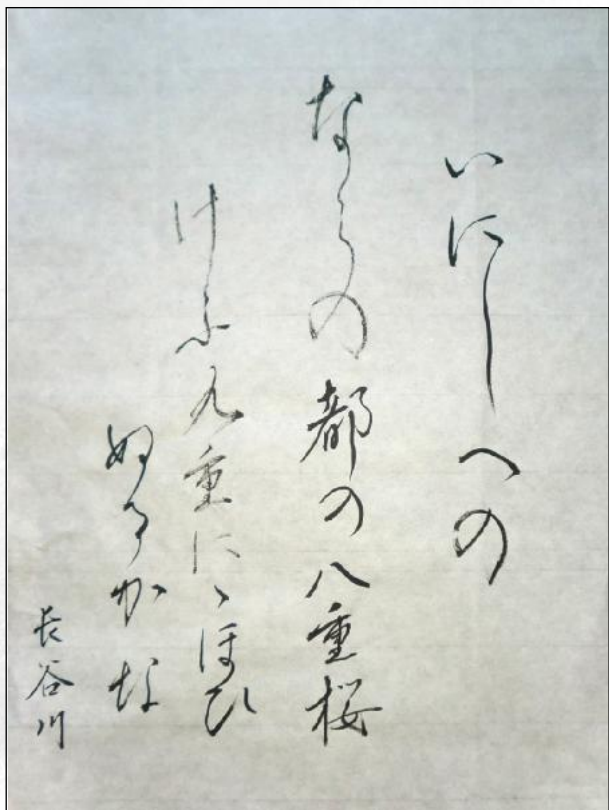 いにしへの
ならの都の八重桜
けふ九重にゝほひ
ぬるかな
長谷川